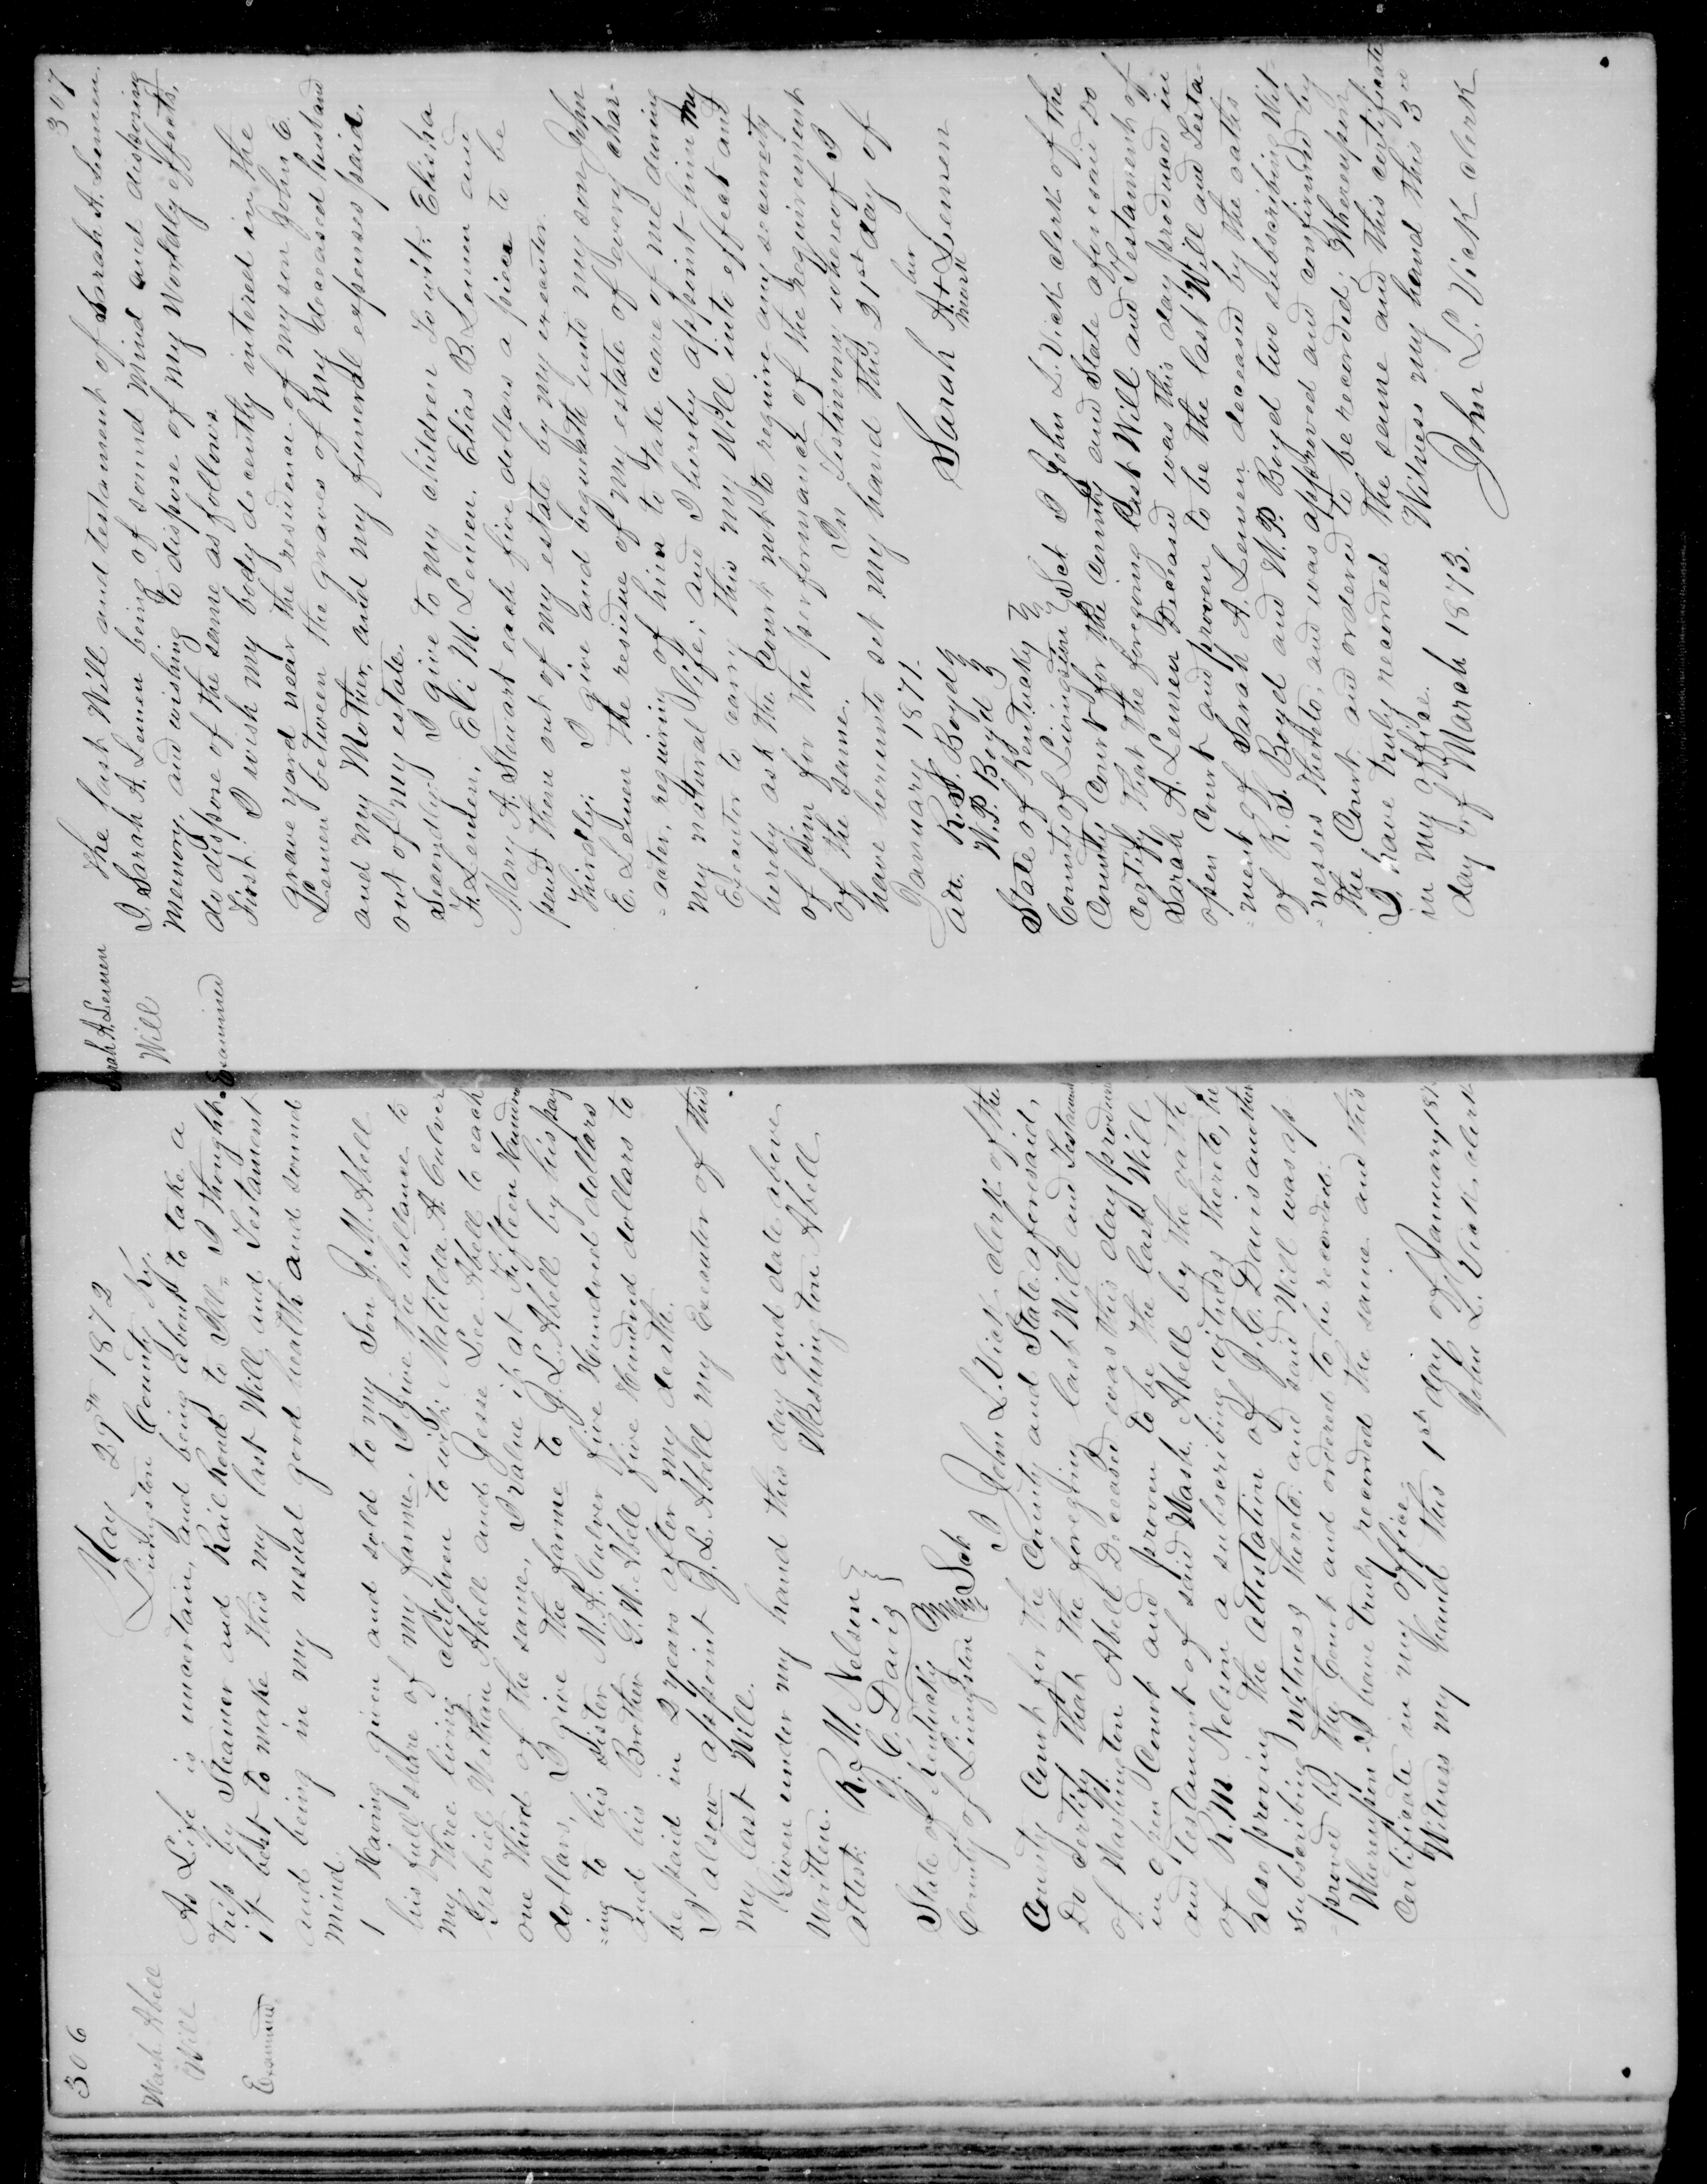 306
Wash. Abell
Will
Examined
May 29th 1872
Livingston County Ky.
As Life is uncertain, and being about to take a
trip by Steamer and Rail Road to Ill - I thought
it best to make this my last Will and Testament
and being in my usual good health and sound
mind.
1 Having given and sold to my Son J. M. Abell
his full share of my farm. I give the ballance to
my three living children to wit: Matilda A. Culver
Gabriel W Abell and Jesse Lee Abell to each
one third of the same, I value it at Fifteen Hundred
dollars, I give the farm to J. L. Abell by his pay
=ing to his sister M. A. Culver five Hundred dollars
and his Brother G. W. Abell five Hundred dollars to
be paid in 2 years after my death.
I alsow appoint J. L. Abell my Executor of this
my last Will.
Given under my hand this day and date above
written. Washington Abell
Attest: R. M. Nelson
J. C. Davis
State of Kentucky
County of Livingston Sct
I John L. Vick clerk of the
County Court for the County and State aforesaid,
Do Certify that the foregoing last Will and Testament
of Washington Abell Deceased was this day produced
in open Court and proven to be the last Will
and testament of said Wash. Abell by the oath
of R. M. Nelson a subscribing witness thereto, he
also proving the attestation of J. C. Davis another
subscribing witness thereto. and said Will was ap
-proved by the Court and ordered to be recorded.
Whereupon I have truly recorded the same and this
Certificate in my office.
Witness my hand this 1st day of January 187
John L. Vick, clerk
307
Sarah A. Lemen
Will
Examined
The last Will and testament of Sarah A. Lemen.
I. Sarah A. Lemen being of sound Mind and disposing
Memory, and wishing to dispose of my Worldly effects,
do dispose of the same as follows.
First: I wish my body decently intered in the
grave yard near the residence of my son John E.
Lemen between the graves of my deceased husband
and my Mother, and my funeral expenses paid,
out of my estate.
Secondly: I give to my children To wit: Elisha
F. Lemen, Eli M. Lemen, Elias B. Lemen and
Mary A. Stewart each five dollars a piece to be
paid them out of my estate by my executor.
Thirdly: I give and bequeath unto my son John
E. Lemen the residue of my estate of every char-
-acter, requiring of him to take care of me during
my natural Life; and I hereby appoint him my
Executor to carry this my Will into effect and
hereby ask the Court not to require any security
of him for the performance of the requirement
of the same. In testimony whereof I
have hereunto set my hand this 21st day of
January 1871.
Att. R. S. Boyd
W. P. Boyd
Sarah A + Lemen
her
mark
State of Kentucky
County of Livingston Sct I John L. Vick clerk of the
County Court for the County and State aforesaid Do
Certify that the foregoing Last Will and Testament of
Sarah A. Lemen Deceased was this day produced in
open Court and proven to be the last Will and Testa-
-ment of Sarah A Lemen deceased by the oaths
of R. S. Boyd and W. P. Boyd two subscribing Wit-
-nesses thereto; and was approved and confirmed by
the Court and ordered to be recorded; Whereupon
I have truly recorded the same and this certificate
in my office. Witness my hand this 3rd
day of March 1873.
John L. Vick clerk